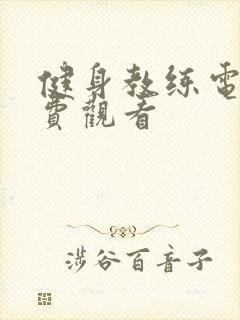 健身教练電
費觀看
涉谷百音子